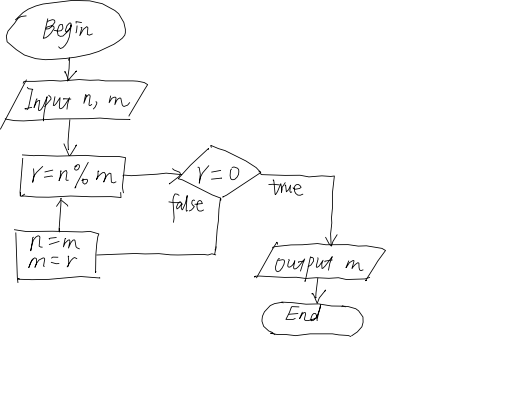 Begin
Input n, m
r=n%m
r=0
false
true
n=m
m=r
output m
End